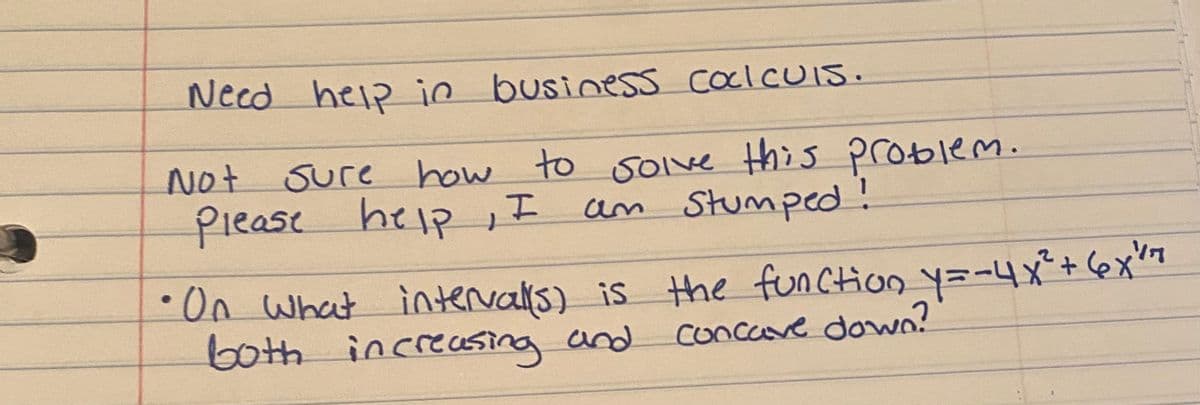 Need help in business calcuis.
Not sure how to solve this problem.
Please help, I am stumped!
• On what interval(s) is the function y=-4x²+6x^1/7
both increasing and concave down?